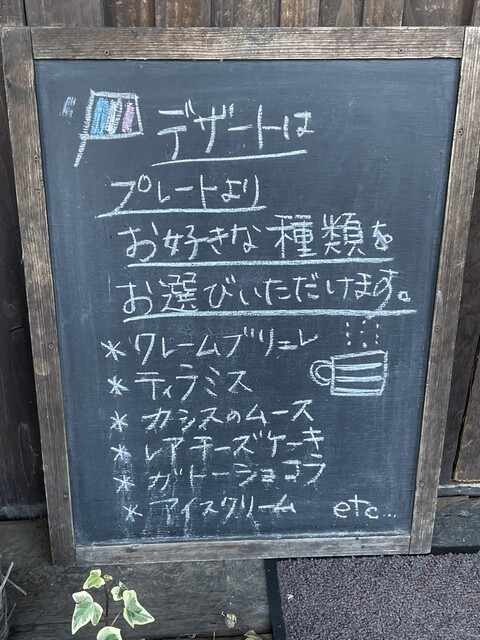 デザートは
プレートより
お好きな種類を
お選びいただけます。
* クレームブリュレ
* ティラミス
* カシスのムース
* レアチーズケーキ
* ガトーショコラ
* アイスクリーム etc...